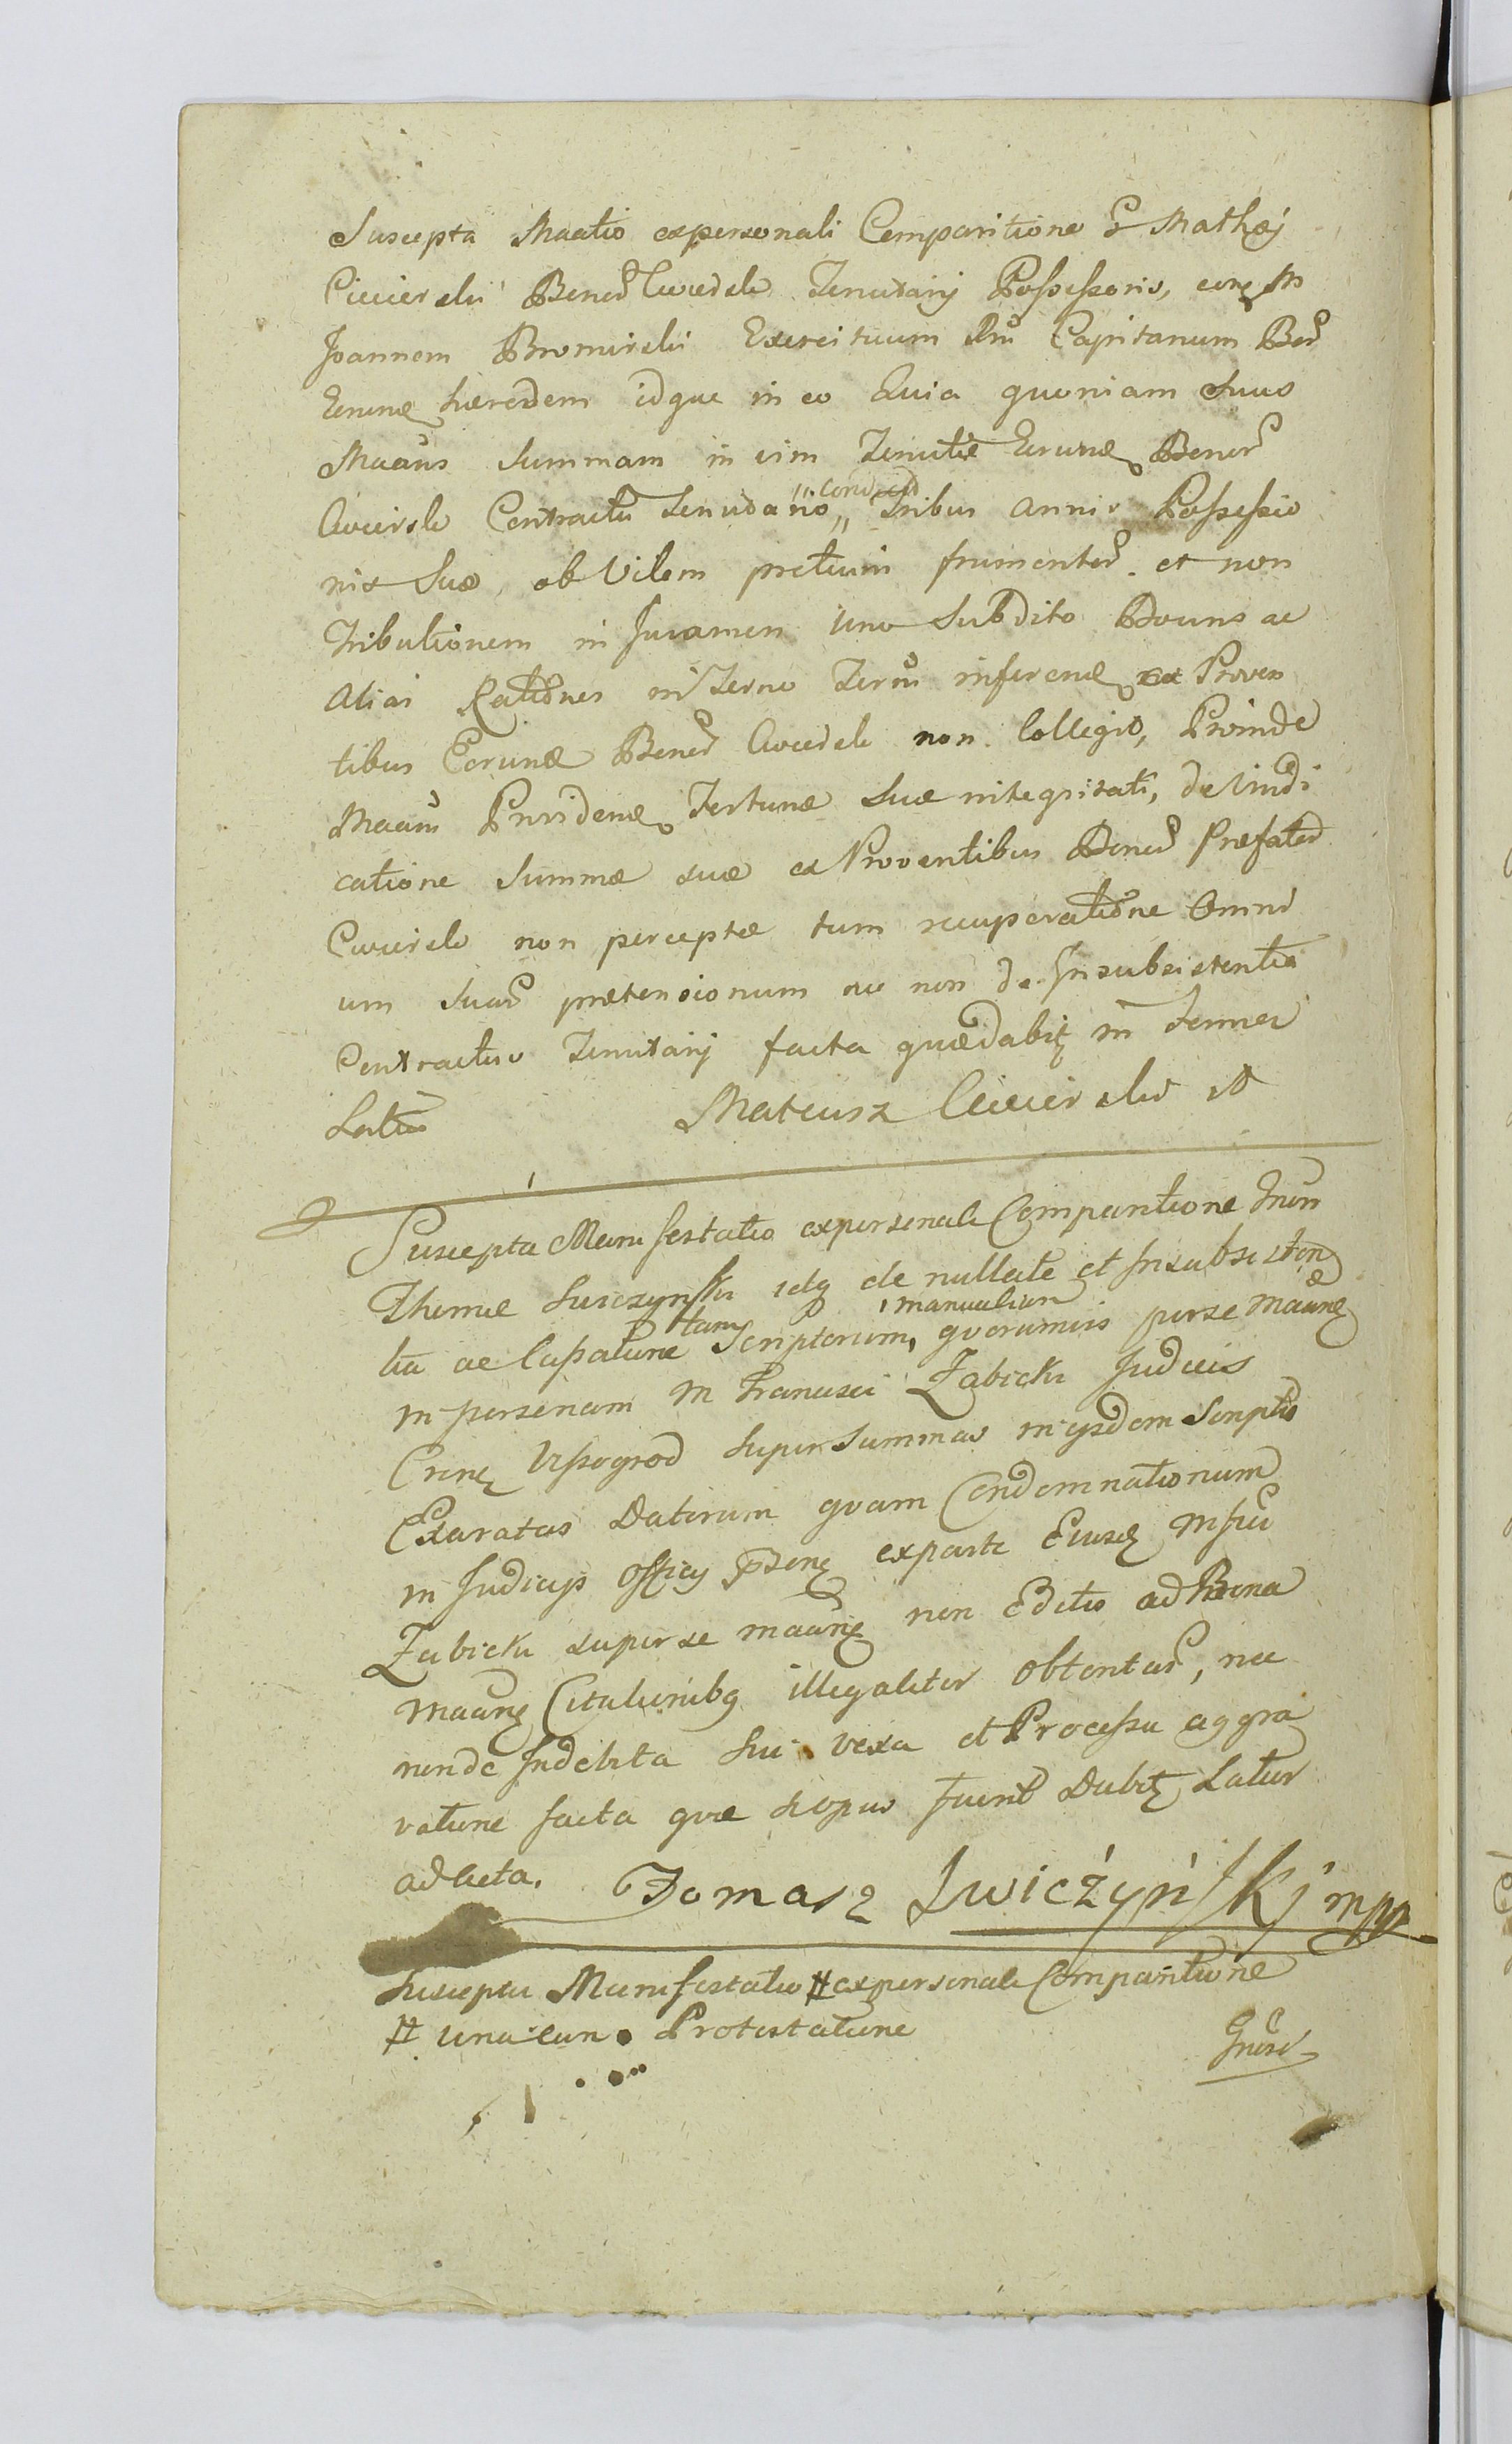 Suscepta Maatio ex personali Comparitione G Mathæj
Ciecierski Bonor Cwiersk Tenutarij Possessoris, cora M
Joannem Bromirski Exercituum Rni Capitanum Bor
Eorund hæredem idque in eo Quia quoniam Suus
Maans Summam in vim Tenutæ Eorund Bonor
Cwiersk Contractu Tenutario Tribus annis Possessio
nis Suæ, ob Vilem pretium frumentor. et non
Tributionem in Juvamen Uno Subdito Bouns ac
alias Rationes in Terno Termi inferend ex Proven
tibus Eorund Bonor Cwiersk non Collegit, Proinde
Maans Providend Fortunæ Suæ integritati, de Vindi
catione Summæ suæ ex Proventibus Bonor Præfator
Cwiersk non perceptæ tum recuperatione Omni
um Suar prætensionum nec non de Insubsistentia
Contractus Tenutarij facta quæ dabit in Termi
Latius Mateusz Ciecierski m
Suscepta Manifestatio ex personali Comparitione Gnosi
Thomæ Swiczynski idq de nullitate et Insubsisten
tia ac Cassatione tam Scriptorum, manualium quorumvis per se Maane
in personam M Francisci Zabicki Judicis
Crene Vyssogrod super Summas in ijsdem Scriptis
Exaratas Datorum quam Condemnationum
in Judicijs Officij Psene ex parte Eiusd Msici
Zabicki super se maane non Editis ad Bona
Maane Citationibq illegaliter obtentar, nec
non de Indebita Sui vexa et Processu aggra
vatione facta quæ si opus fuerit Dabit Latior
ad Acta. Tomasz Swiczyński mpp
Suscepta Manifestatio # ex personali Comparitione
# una cum Protestatione
Gnosi